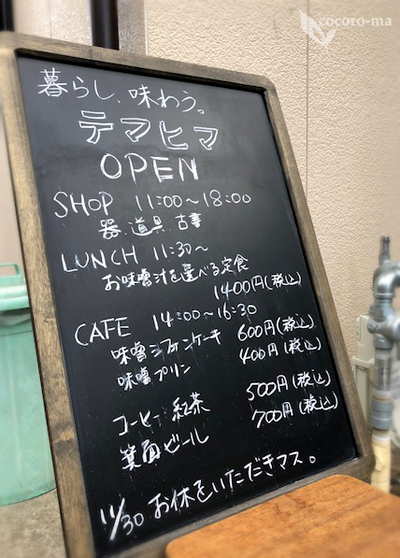 cocoro-ma
暮らし、味わう。
テマヒマ
OPEN
SHOP 11:00～18:00
器 道具 古書
LUNCH 11:30～
お味噌汁を選べる定食
1400円(税込)
CAFE 14:00～16:30
味噌シフォンケーキ 600円(税込)
味噌プリン 400円(税込)
コーヒー 紅茶 500円(税込)
箕面ビール 700円(税込)
11/30 お休をいただきマス。